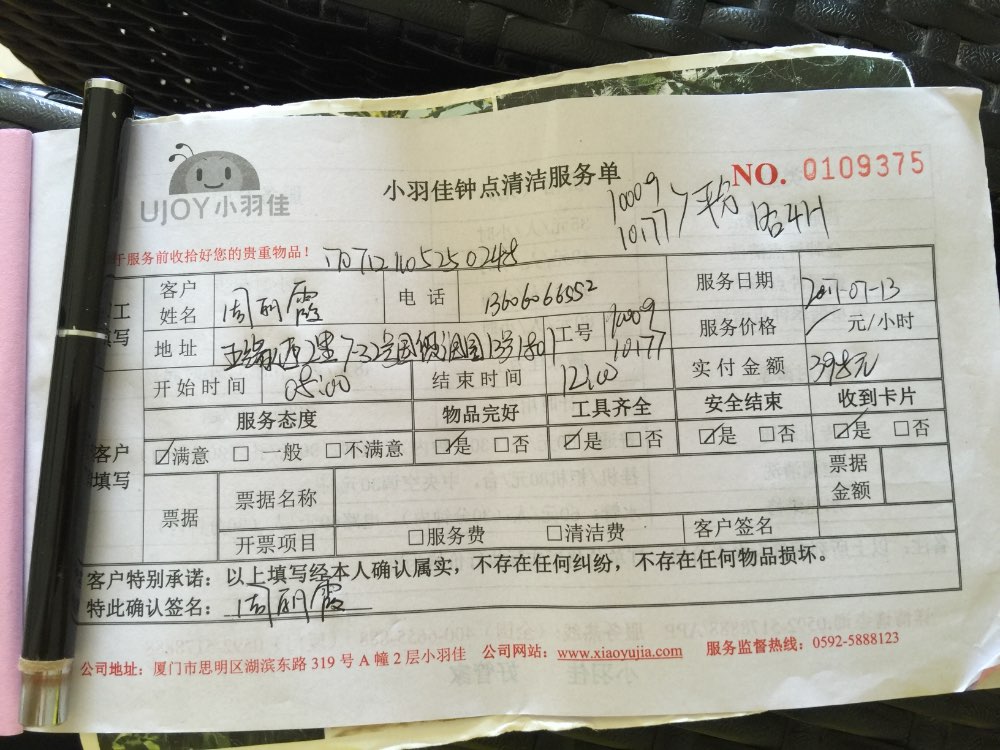 UJOY小羽佳
小羽佳钟点清洁服务单
NO. 0109375
10009
10177
4H
于服务前收拾好您的贵重物品!
1707121105250248
工
填写
客户姓名 周丽霞 电话 13606066552 服务日期 2017-07-13
地址 13号 工号 10009 10177 服务价格 / 元/小时
开始时间 08:00 结束时间 12:00 实付金额 398元
客户填写
服务态度 物品完好 工具齐全 安全结束 收到卡片
☑满意 □一般 □不满意 ☑是 □否 ☑是 □否 ☑是 □否 ☑是 □否
票据 票据名称 票据金额
开票项目 □服务费 □清洁费 客户签名
客户特别承诺:以上填写经本人确认属实,不存在任何纠纷,不存在任何物品损坏。
特此确认签名:周丽霞
公司地址:厦门市思明区湖滨东路 319 号 A 幢 2 层小羽佳 公司网站:www.xiaoyujia.com 服务监督热线:0592-5888123